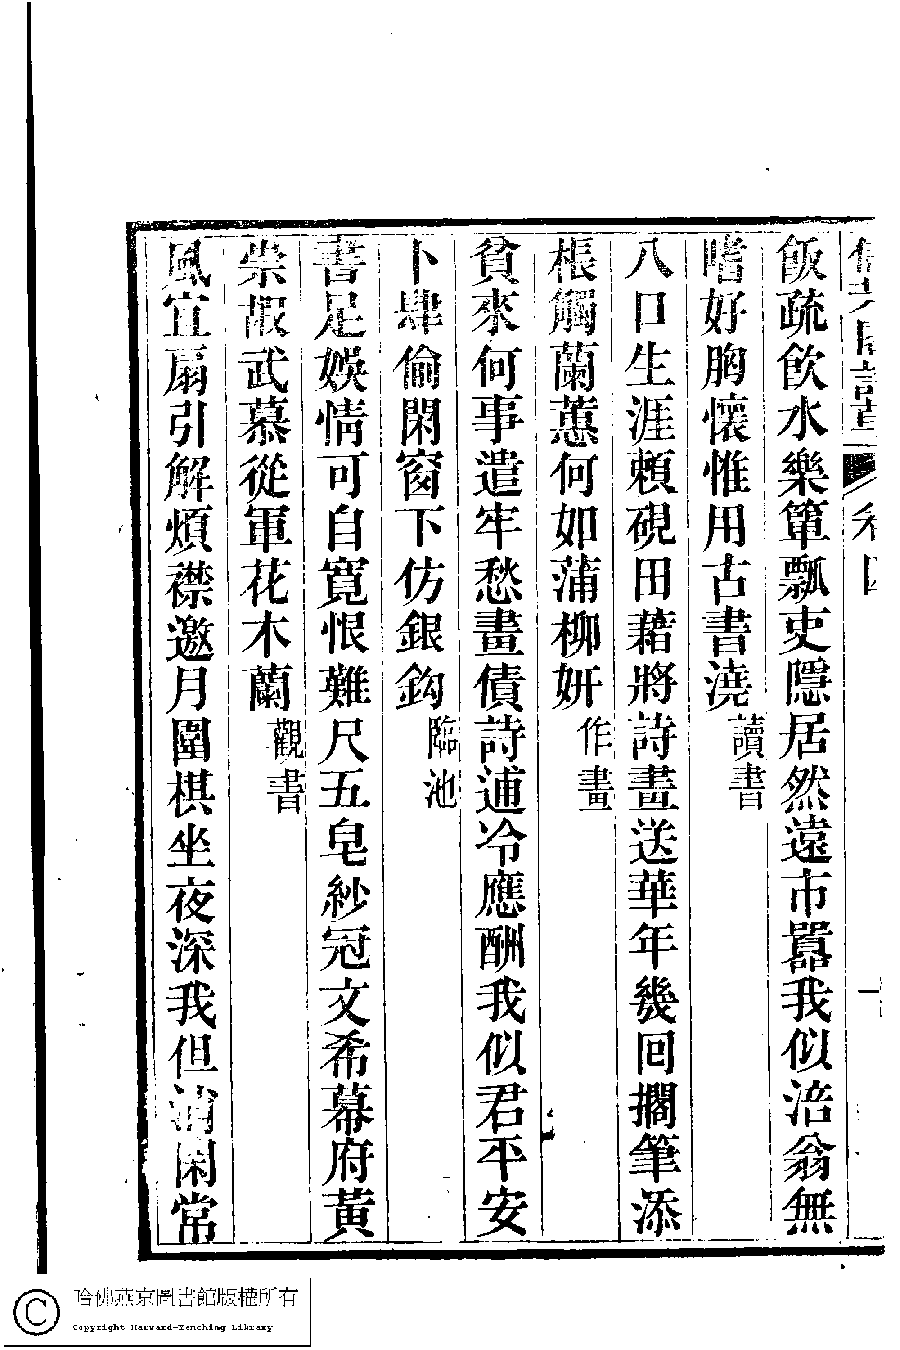 卷四
一
飯疏飲水樂簞瓢吏隱居然遠市囂我似涪翁無
嗜好胸懷惟用古書澆讀書
八口生涯賴硯田藉將詩畫送華年幾回擱筆添
棖觸蘭蕙何如蒲柳妍作畫
貧來何事遣牢愁畫債詩逋冷應酬我似君平安
卜肆偷閑窗下仿銀鈎臨池
書足娛情可自寬恨難尺五皂紗冠文希幕府黃
崇嘏武慕從軍花木蘭觀書
風宜扇引解煩襟邀月圍棋坐夜深我但消閑常
哈佛燕京圖書館版權所有
Copyright Harvard-Yenching Library